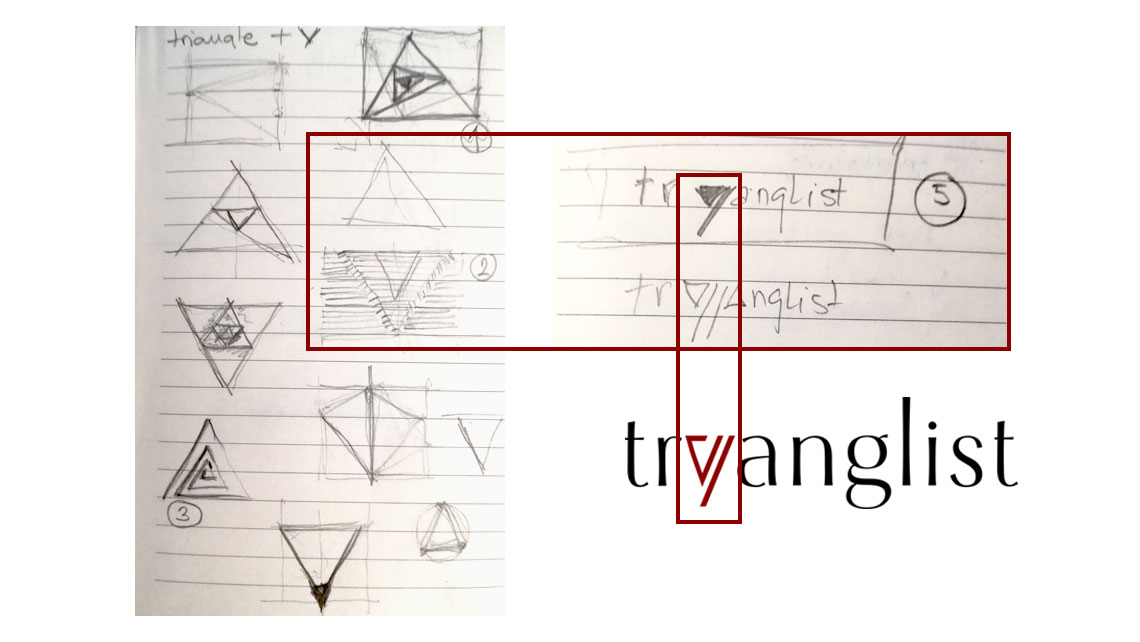 triangle + Y
1
tryanglist
5
2
tryanglist
tryanglist
3